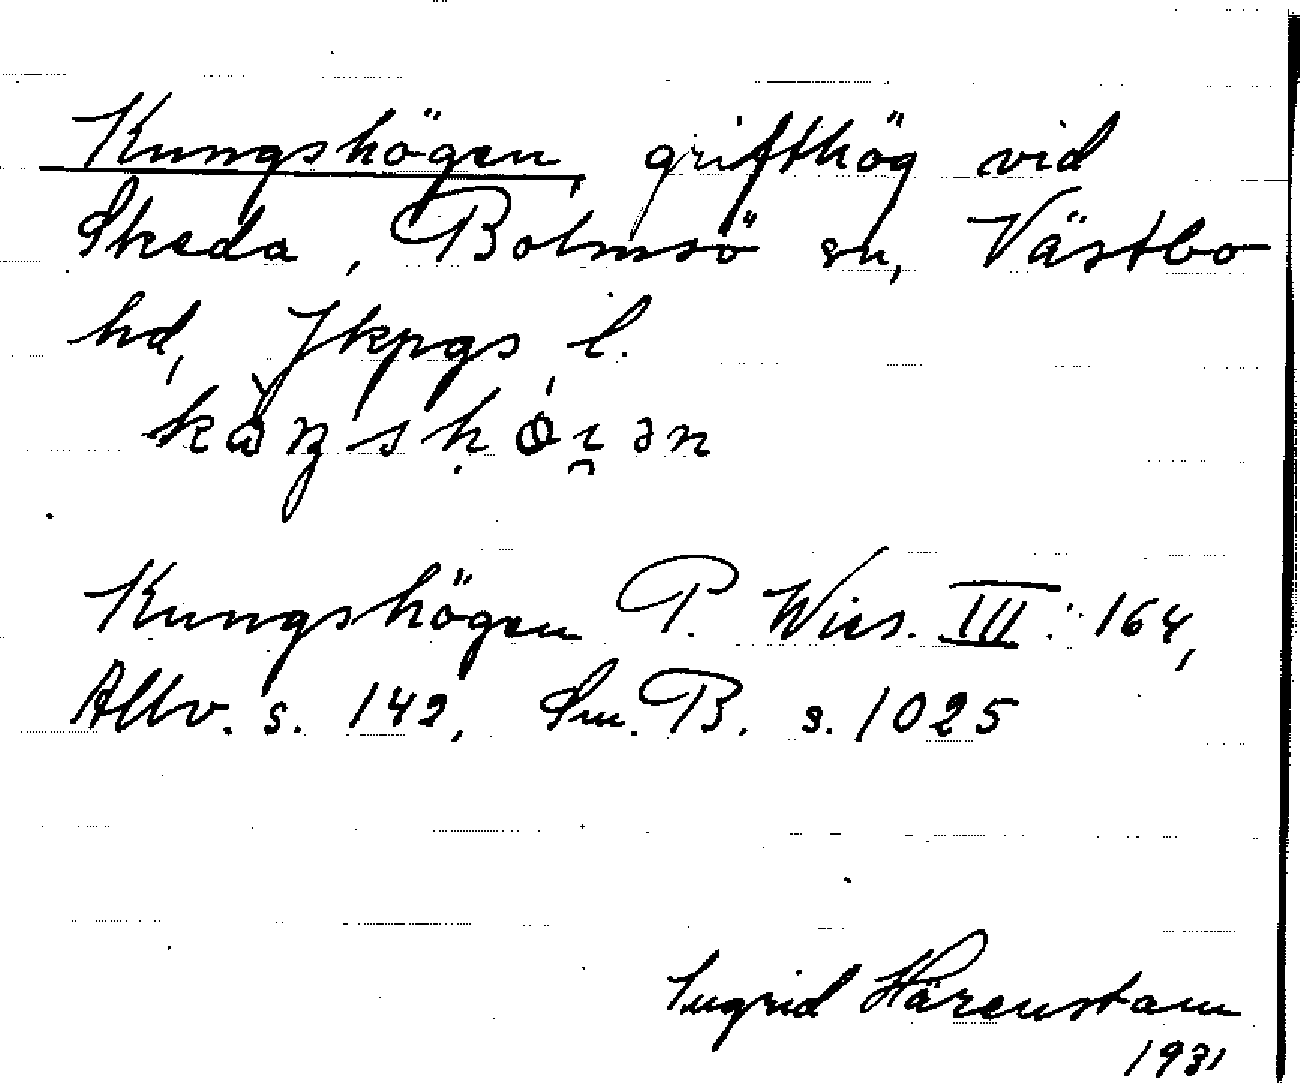 Kungshögen, grifthög vid
Skeda, Bolmsö sn, Västbo
hd, Jkpgs l.
Kungshögen P. Wies. III: 164,
Allv. s. 142, Sm. B. s. 1025
Ingrid Härenstam
1931